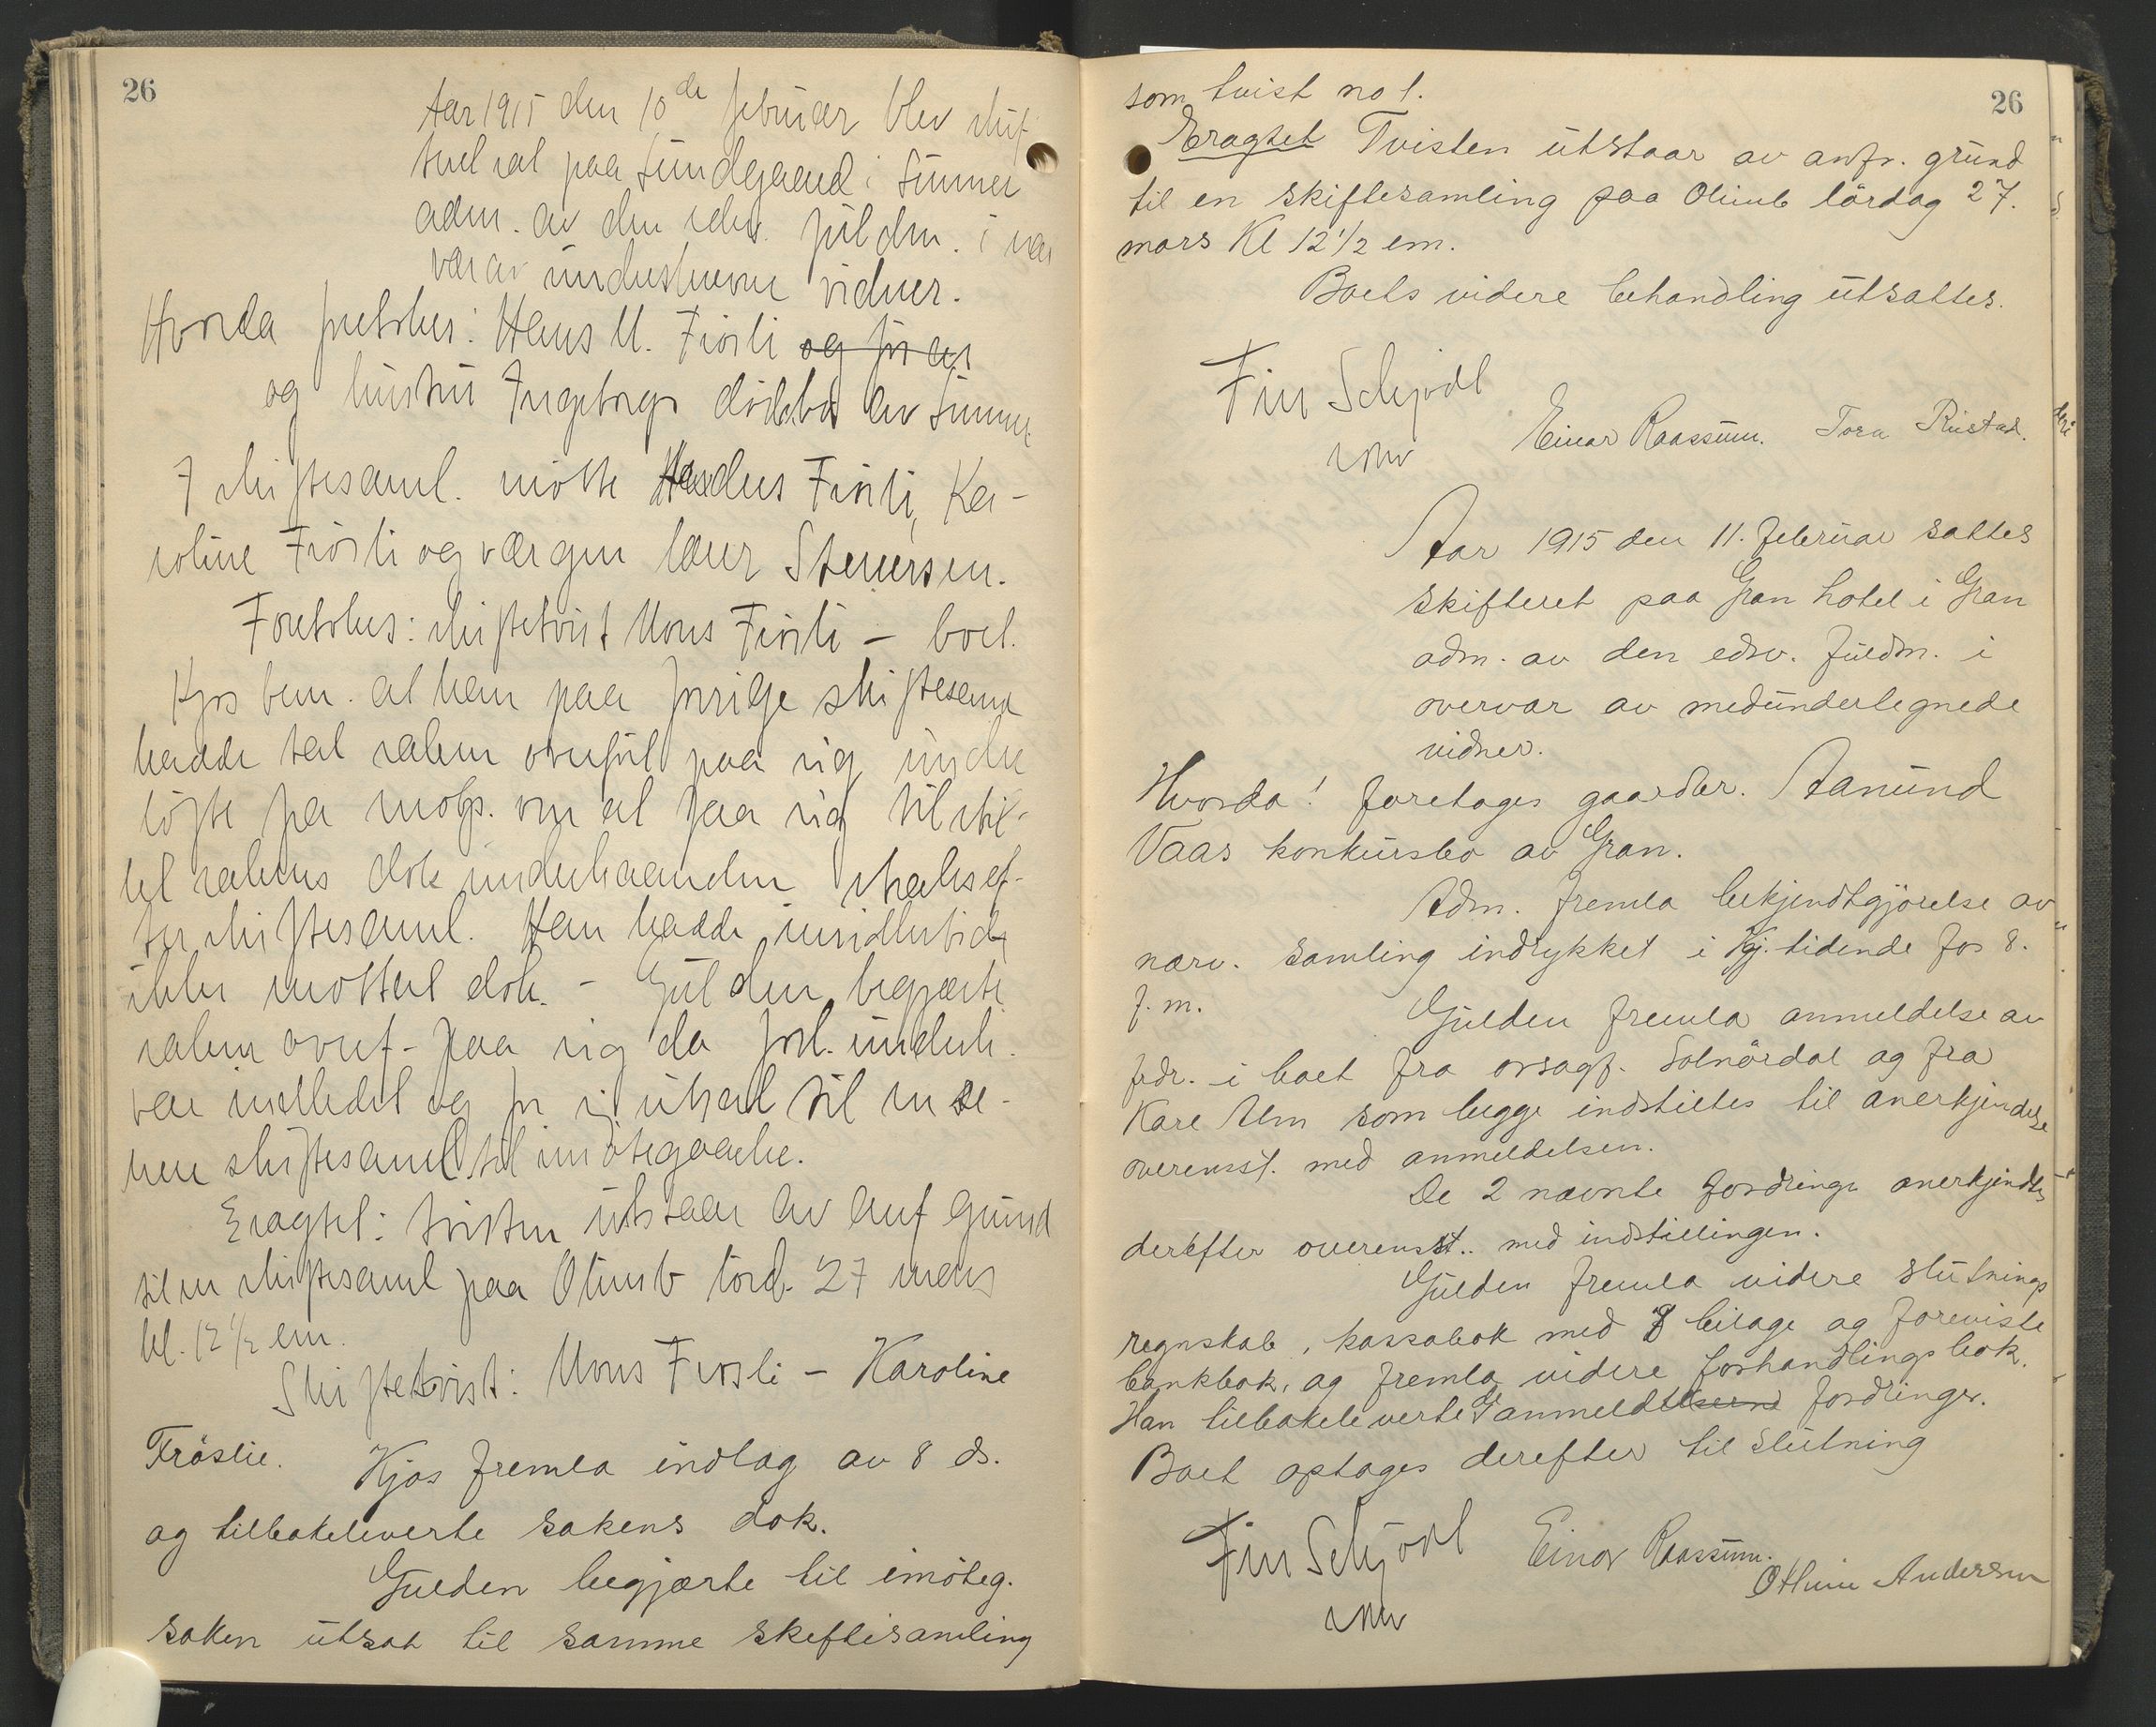 26
Aar 1915 den 10de februar blev skif-
teret sat paa Sundgaard i Brunner
adm. av den edsv. fuldm. i nær
vær av undertegnede vidner.
Hvorda foretokes: Hans M. Frösli og for av
og hustru Ingeborgs dödsbo av
I skiftesaml. mötte Frösli, Ka-
roline Frösli og værgen Lars Steuersen.
Foretokes: skiftetvist Mons Frösli – boet.
Kjos bem. at han paa forrige skiftesaml
hadde tat saken overfört paa sig under
löfte fra motp. om at faa sig tilstil-
let sakens dok underhaanden straks ef-
ter skiftesaml. Han hadde imidlertid
ikke mottat dok. – Gulden begjærte
saken overf. paa sig da forl. underh.
var indledet og for utsat til en se-
nere skiftesaml til imötegaaelse.
Eragtet: tvisten utstaar av anf grund
til en skiftesaml paa Olimb lörd. 27 mars
kl. 12 1/2 em.
Skiftetvist: Mons Frösli – Karoline
Fröslie. Kjos fremla indlag av 8 ds.
og tilbakeleverte sakens dok.
Gulden begjærte til imöteg.
saken utsat til samme skiftesamling
26
som tvist no 1.
Eragtet Tvisten utstaar av anfr. grund
til en skiftesamling paa Olimb lördag 27.
mars Kl 12 1/2 em.
Boets videre behandling utsattes.
Fin Schjödt
edsv
Einar Raassum. Tora Rustad.
Aar 1915 den 11. februar sattes
skifteret paa Gran hotel i Gran
adm. av den edsv. fuldm. i
overvær av medundertegnede
vidner.
Hvorda! foretages gaardbr. Aamund
Vaas konkursbo av Gran.
Adm. fremla bekjendtgjörelse av
nærv. samling indrykket i Kj. tidende for 8.
f. m.
Gulden fremla anmeldelse av
fodr. i boet fra orsagf. Solnördal og fra
Kare Alm som begge indstilles til anerkjendelse
overensst. med anmeldelsen.
De 2 nævnte fordringe anerkjendtes
derefter overensst. med indstillingen.
Gulden fremla videre slutnings
regnskab, kassabok med 8 bilage og foreviste
bankbok, og fremla videre forhandlingsbok.
Han tilbakeleverte de anmeldelserne fordringer.
Boet optages derefter til slutning
Fin Schjödt
edsv
Einar Raassum.
Othine Andersen